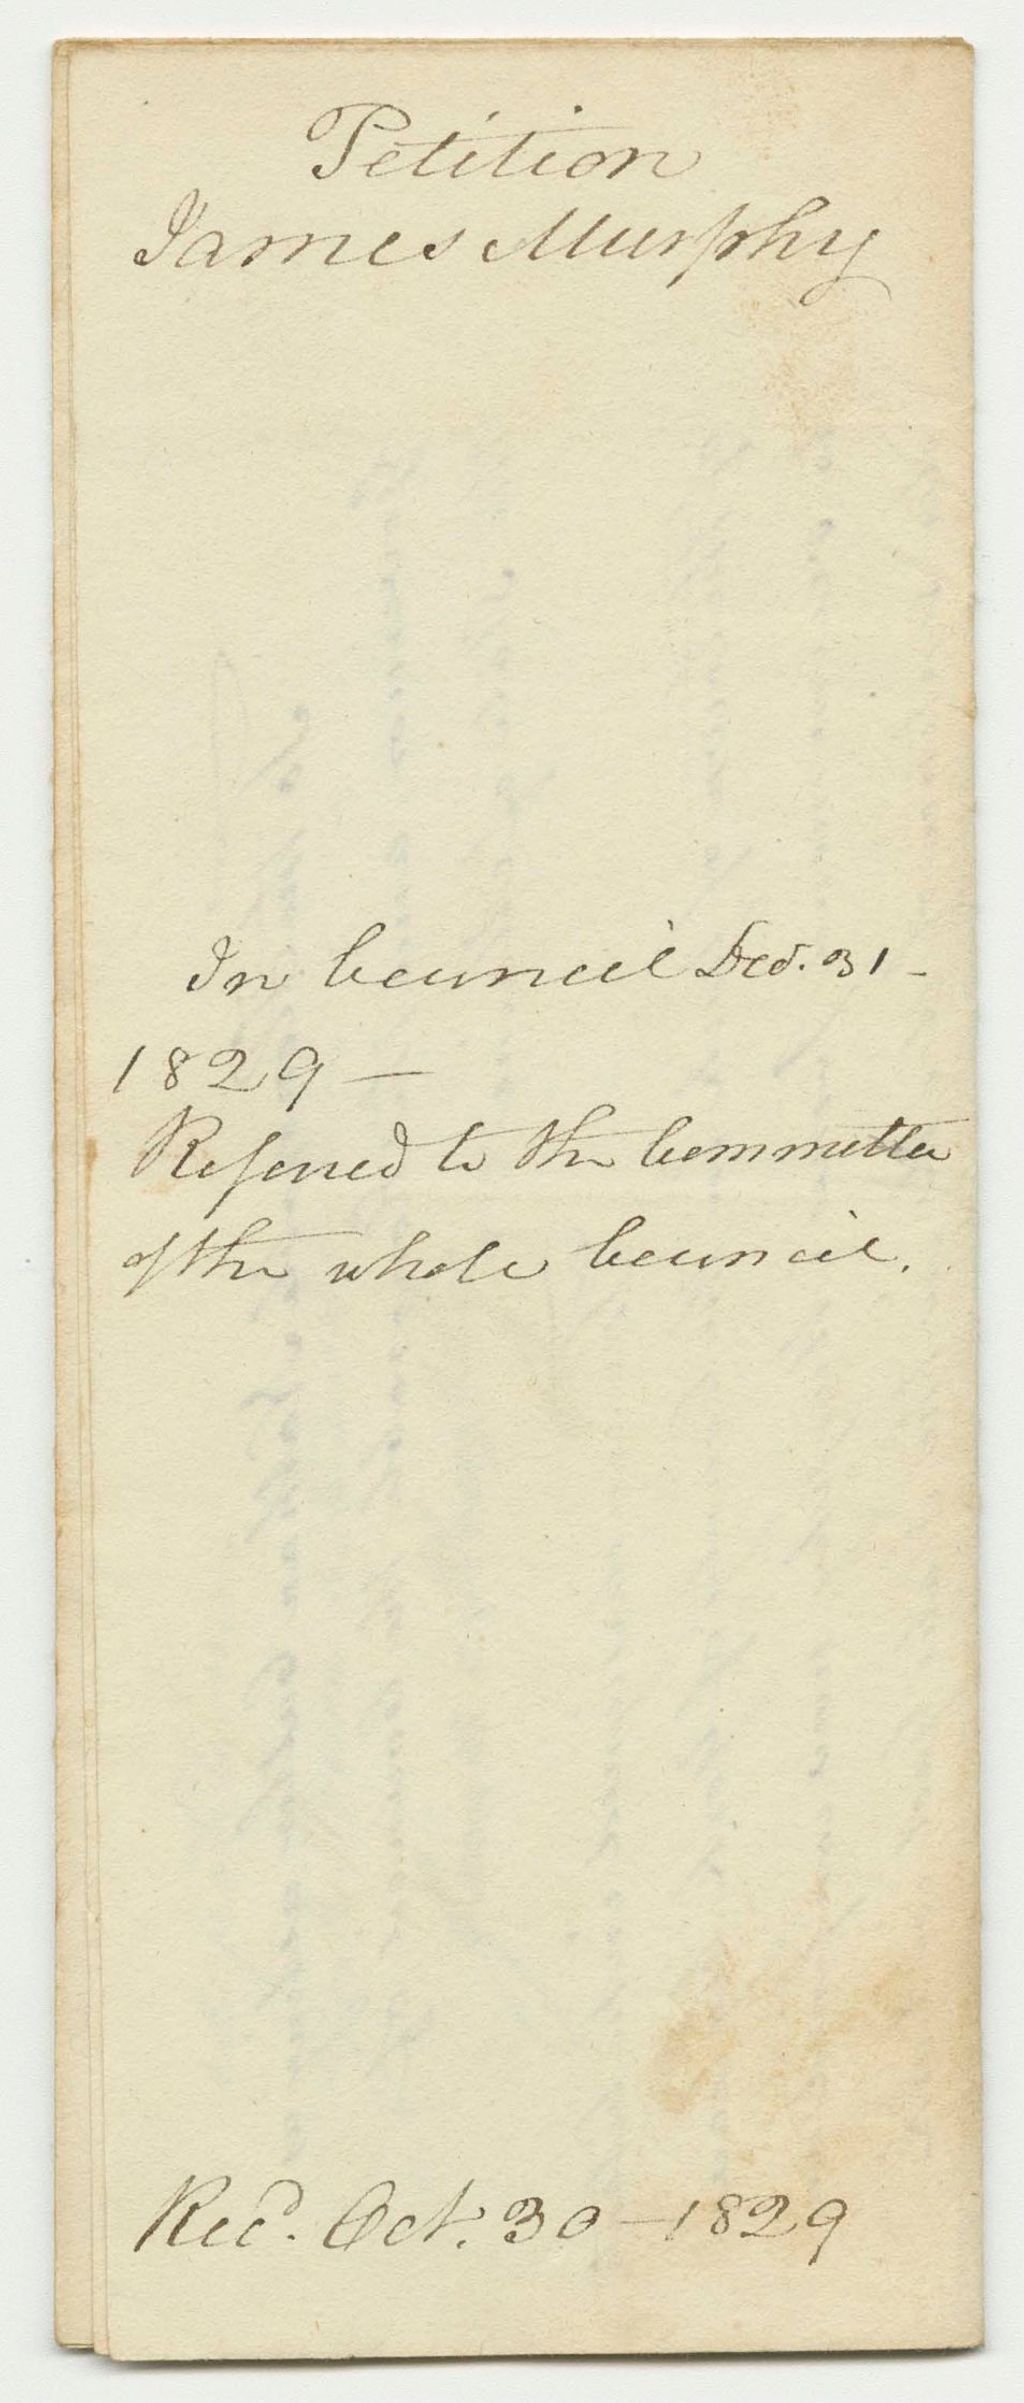 Petition
James Murphy
In Council Dec. 31 -
1829 —
Referred to the Committee
of the whole Council.
Recd. Oct. 30 — 1829